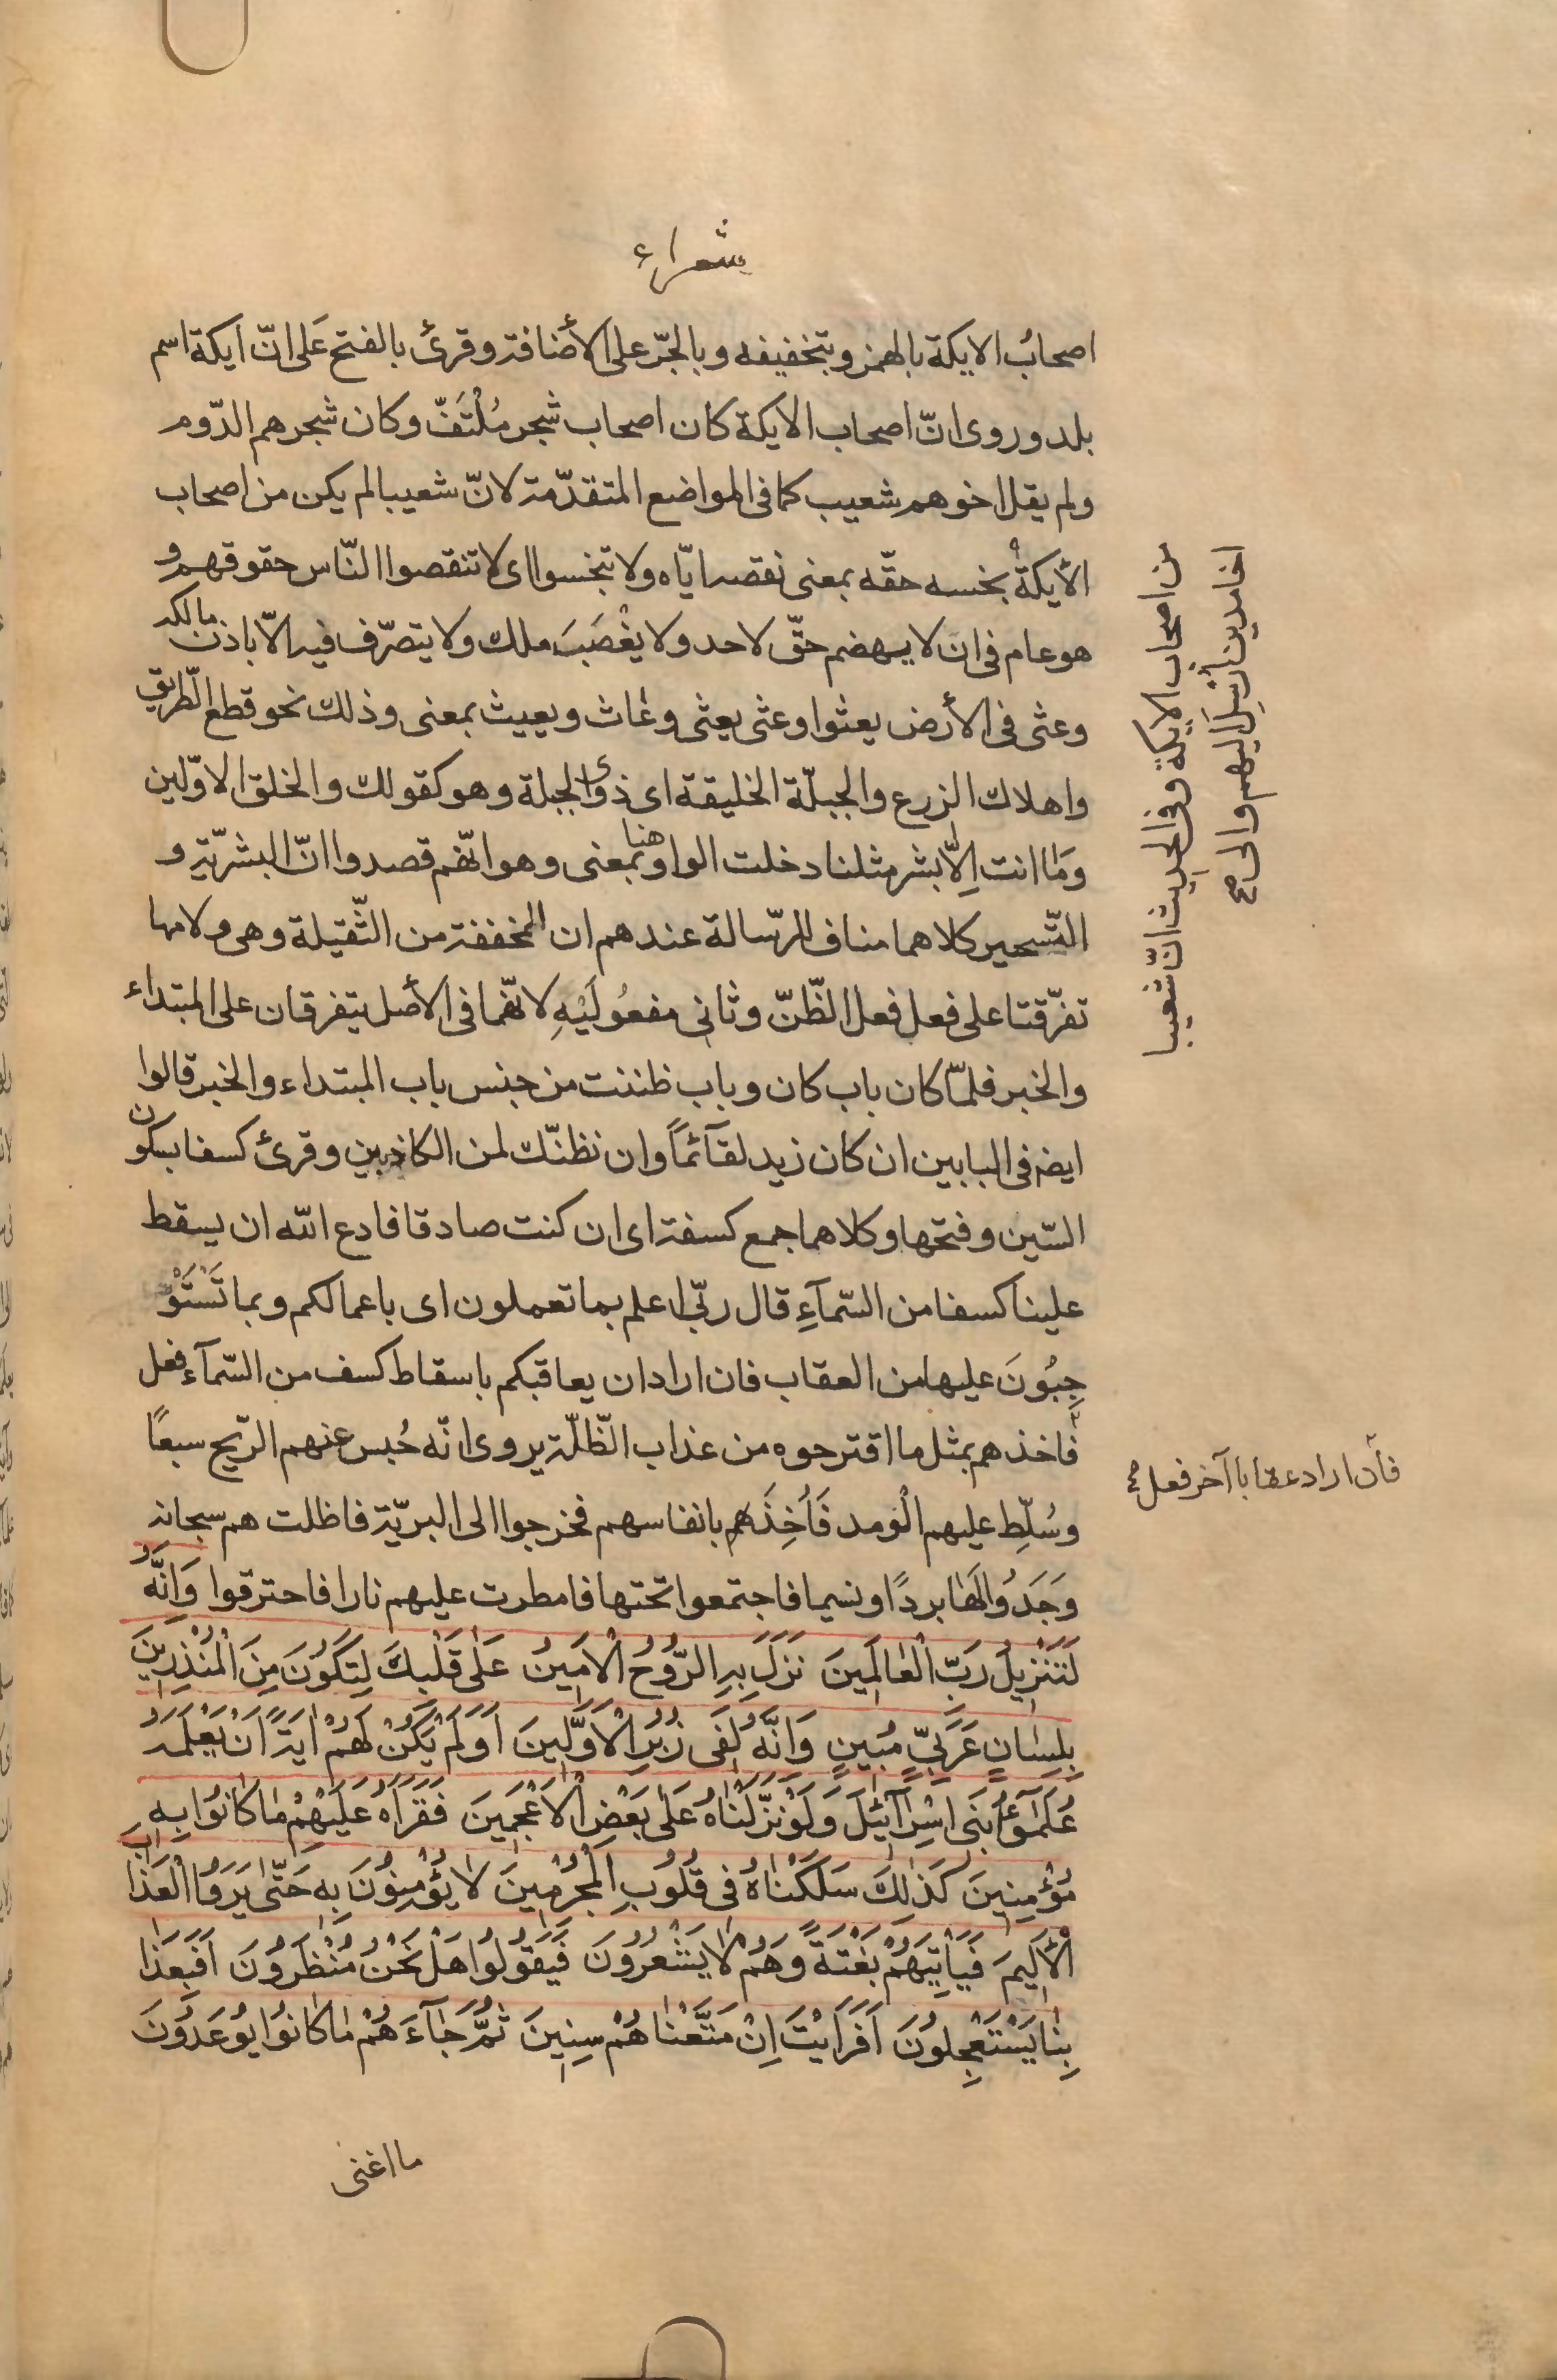 شعراء
اصحابُ الايكة بالهمز وبتخفيفه وبالجرّ على الأضافة وقرئ بالفتح عَلى انّ ايكة اسم
بلد وروى انّ اصحاب الايكة كان اصحاب شجر مُلْتَفّ وكان شجرهم الدّوم
ولم يقل اخوهم شعيب كما فى المواضع المتقدّمة لانّ شعيبا لم يكن من اصحاب
الأيكة بخسه حقّه بمعنى نقصه ايّاه ولا تبخسوا اى لا تنقصوا النّاس حقوقهم و
هو عام فى ان لا يهضم حقّ لاحد ولا يغْصَبَ ملك ولا يتصرّف فيه الّا باذن مالكه
وعثى فى الأرض يعثوا وعثى يعثى وعاث ويعيث بمعنى وذلك نحو قطع الطّريق
واهلاك الزرع والجبلّة الخليقة اى ذوى الجبلة وهو كقولك والخلق الاوّلين
وَما انت اِلّا بشر مثلنا دخلت الواو هنا بمعنى وهو انّهم قصدوا انّ البشريّة و
التّسحير كلاهما مناف للرّسالة عندهم ان المخففة من الثّقيلة وهى ولامها
تفرّقتا على فعل فعل الظّنّ وثانى مفعُولَيْهِ لانّهما فى الأصل يتفرقان على المبتداء
والخبر فلمّا كان باب كان وباب ظننت من جنس باب المبتداء والخبر قالوا
ايضه فى البابين ان كان زيد لقآئماً وان نظنّك لمن الكاذبين وقرئ كسفا بسكون
السّين وفتحها وكلاهما جمع كسفة اى ان كنت صادقا فادع الله ان يسقط
علينا كسفا من السّمآءِ قال ربّى اعلم بما تعملون اى باعمالكم وبما تَسْتَوْ
جِبُونَ عليها من العقاب فان اراد ان يعاقبكم باسقاط كسف من السّمآء فعل
فاخذهم بمثل ما اقترحوه من عذاب الظّلّة يروى انّه حُبس عنهم الرّيح سبعًا
وسُلِّط عليهم الْومد فَاُخِذَهم بانفاسهم فخرجوا الى البريّة فاظلت هم سحابة
وَجَدُوا لَهٰا بردًا ونسيما فاجتمعوا تحتها فامطرت عليهم نارا فاحترقوا وَاِنَّهُ
لَتَنْزِيلُ رَبِّ الْعٰالَمِينَ نَزَلَ بِهِ الرُّوحُ الْاَمِينُ عَلٰى قَلْبِكَ لِتَكُونَ مِنَ الْمُنْذِرِينَ
بِلِسٰانٍ عَرَبِيٍّ مُبِينٍ وَاِنَّهُ لَفِى زُبُرِ الْاَوَّلِينَ اَوَلَمْ يَكُنْ لَهُمْ اٰيَةً اَنْ يَعْلَمَهُ
عُلَمٰٓؤُا بَنِى اِسْرٰٓائِيلَ وَلَوْ نَزَّلْنٰاهُ عَلٰى بَعْضِ الْاَعْجَمِينَ فَقَرَاَهُ عَلَيْهِمْ مٰا كٰانُوا بِهِ
مُؤْمِنِينَ كَذٰلِكَ سَلَكْنٰاهُ فِى قُلُوبِ الْمُجْرِمِينَ لٰا يُؤْمِنُونَ بِهِ حَتّٰى يَرَوُا الْعَذٰابَ
الْاَلِيمَ فَيَاْتِيَهُمْ بَغْتَةً وَهُمْ لٰا يَشْعُرُونَ فَيَقُولُوا هَلْ نَحْنُ مُنْظَرُونَ اَفَبِعَذٰا
بِنٰا يَسْتَعْجِلُونَ اَفَرَاَيْتَ اِنْ مَتَّعْنٰاهُمْ سِنِينَ ثُمَّ جٰٓاءَهُمْ مٰا كٰانُوا يُوعَدُونَ
ما اغنى
من اصحاب الايكة وفى الحديث انّ شعيبا
اخا مدين اُرْسِلَ اليهم والى صح
فان اراد عقابا آخر فعل صح